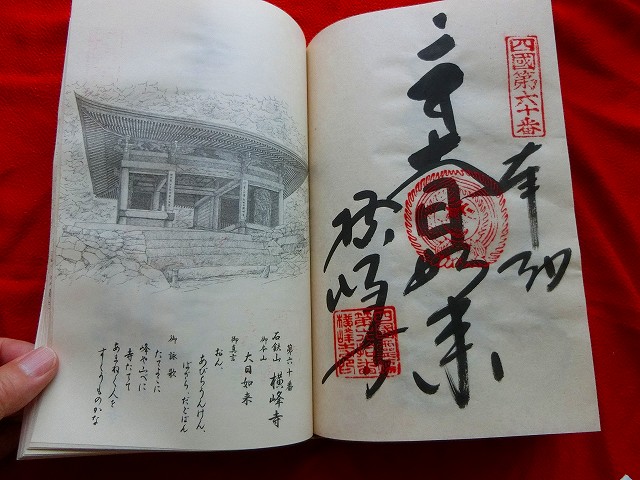 四國第六十番
奉納
大日如来
横峰寺
第六十番
石鈇山 横峰寺
大日如来
御真言
おん、
あびらうんけん、
ばざら、だどばん
御詠歌
たてよこに
峰や山べに
寺たてて
あまねく人を
すくうものかな